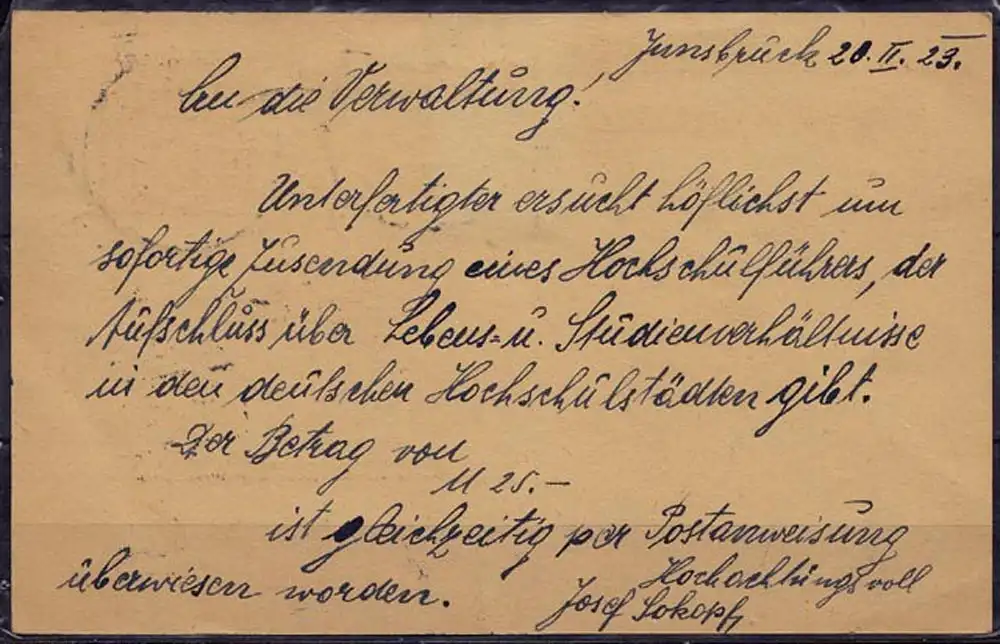 Innsbruck 20. II. 23.
An die Verwaltung!
Unterfertigter ersucht höflichst um
sofortige Zusendung eines Hochschulführers, der
Aufschluss über Lebens- u. Studienverhältnisse
in den deutschen Hochschulstädten gibt.
Der Betrag von
M 25.—
ist gleichzeitig per Postanweisung
überwiesen worden.
Hochachtungsvoll
Josef